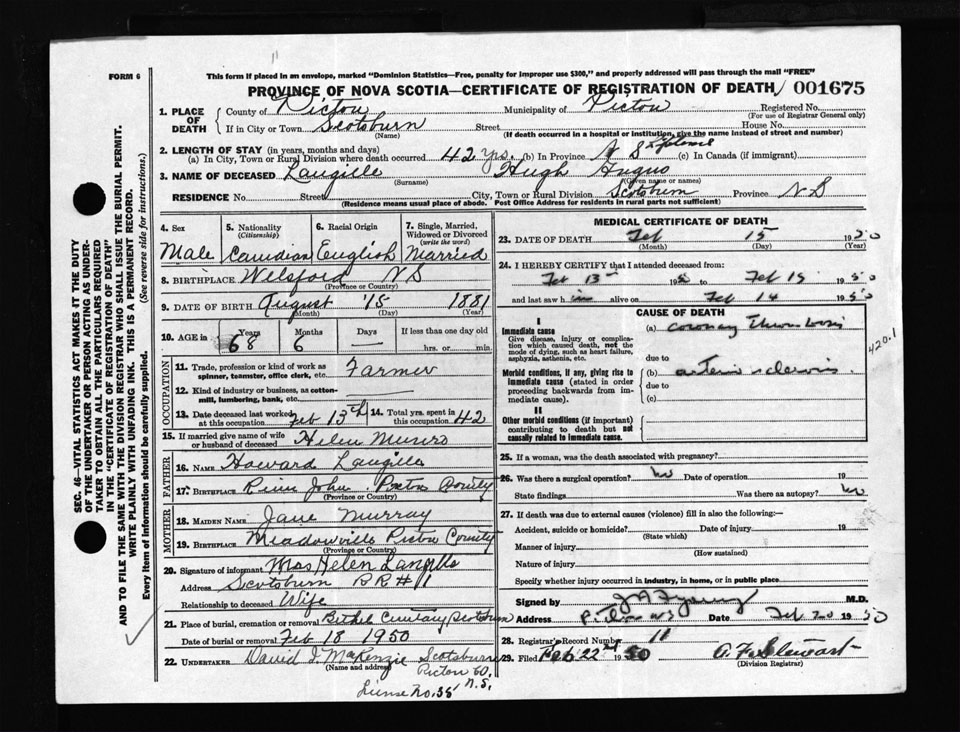 FORM 6
This form if placed in an envelope, marked "Dominion Statistics—Free, penalty for improper use $300," and properly addressed will pass through the mail "FREE"
PROVINCE OF NOVA SCOTIA—CERTIFICATE OF REGISTRATION OF DEATH 001675
1. PLACE OF DEATH
County of Pictou Municipality of Pictou Registered No.
(For use of Registrar General only)
If in City or Town Scotsburn Street House No.
(Name) (If death occurred in a hospital or institution, give the name instead of street and number)
2. LENGTH OF STAY (in years, months and days)
(a) In City, Town or Rural Division where death occurred 42 yrs. (b) In Province N S (c) In Canada (if immigrant)
3. NAME OF DECEASED Langille Hugh Angus
(Surname) (Given name or names)
RESIDENCE No. Street City, Town or Rural Division Scotsburn Province N S
(Residence means usual place of abode. Post Office Address for residents in rural parts not sufficient)
4. Sex Male
5. Nationality (Citizenship) Canadian
6. Racial Origin English
7. Single, Married, Widowed or Divorced (write the word) Married
8. BIRTHPLACE Welsford N S
(Province or Country)
9. DATE OF BIRTH August 15 1881
(Month) (Day) (Year)
10. AGE in Years Months Days If less than one day old
68 6 hrs. or min.
OCCUPATION
11. Trade, profession or kind of work as spinner, teamster, office clerk, etc. Farmer
12. Kind of industry or business, as cotton-mill, lumbering, bank, etc.
13. Date deceased last worked at this occupation Feb 13th
14. Total yrs. spent in this occupation 42
15. If married give name of wife or husband of deceased Helen Munro
FATHER
16. NAME Howard Langille
17. BIRTHPLACE River John Pictou County
(Province or Country)
MOTHER
18. MAIDEN NAME Jane Murray
19. BIRTHPLACE Meadowville Pictou County
(Province or Country)
20. Signature of informant Mrs Helen Langille
Address Scotsburn R R # 1
Relationship to deceased Wife
21. Place of burial, cremation or removal Bethel Cemetary Scotsburn
Date of burial or removal Feb 18 1950
22. UNDERTAKER David J. MacKenzie Scotsburn
(Name and address) Pictou Co.
License No. 38 N.S.
MEDICAL CERTIFICATE OF DEATH
23. DATE OF DEATH Feb 15 1950
(Month) (Day) (Year)
24. I HEREBY CERTIFY that I attended deceased from:
Feb 13 1950 Feb 15 1950
and last saw him alive on Feb 14 1950
CAUSE OF DEATH
I
Immediate cause
Give disease, injury or complication which caused death, not the mode of dying, such as heart failure, asphyxia, asthenia, etc.
(a) coronary Thrombosis
due to
Morbid conditions, if any, giving rise to immediate cause (stated in order proceeding backwards from immediate cause).
(b) arterio sclerosis
due to
(c)
420.1
II
Other morbid conditions (if important) contributing to death but not causally related to immediate cause.
25. If a woman, was the death associated with pregnancy?
26. Was there a surgical operation? no Date of operation 19
State findings Was there an autopsy? no
27. If death was due to external causes (violence) fill in also the following:
Accident, suicide or homicide? Date of injury 19
(State which)
Manner of injury
(How sustained)
Nature of injury
Specify whether injury occurred in industry, in home, or in public place
Signed by M.D.
Address Pictou N S Date Feb 20 1950
28. Registrar's Record Number 11
29. Filed Feb 22nd 1950 A. F. Stewart
(Division Registrar)
SEC. 46—VITAL STATISTICS ACT MAKES IT THE DUTY
OF THE UNDERTAKER OR PERSON ACTING AS UNDERTAKER TO OBTAIN ALL THE PARTICULARS REQUIRED
IN THE "CERTIFICATE OF REGISTRATION OF DEATH"
AND TO FILE THE SAME WITH THE DIVISION REGISTRAR WHO SHALL ISSUE THE BURIAL PERMIT.
WRITE PLAINLY WITH UNFADING INK. THIS IS A PERMANENT RECORD.
Every item of information should be carefully supplied. (See reverse side for instructions.)